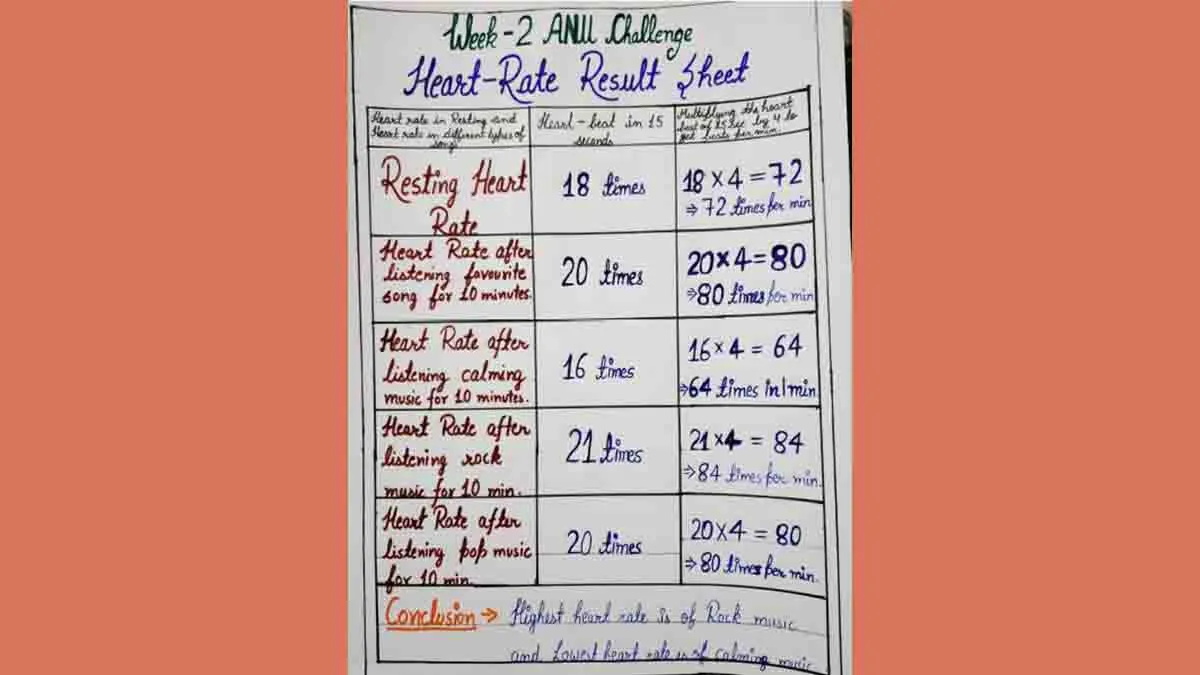 Week-2 ANU Challenge
Heart-Rate Result Sheet
Heart rate in Resting and
Heart rate in different types of
song
Heart-beat in 15
seconds
Multiplying the heart
beat of 15 sec by 4 to
get beats per min.
Resting Heart
Rate
18 times
18 × 4 = 72
⇒ 72 times per min
Heart Rate after
listening favourite
song for 10 minutes.
20 times
20×4=80
⇒80 times per min
Heart Rate after
listening calming
music for 10 minutes.
16 times
16×4 = 64
⇒64 times in 1 min.
Heart Rate after
listening rock
music for 10 min.
21 times
21×4 = 84
⇒84 times per min.
Heart Rate after
listening pop music
for 10 min.
20 times
20×4 = 80
⇒80 times per min.
Conclusion → Highest heart rate is of Rock music
and Lowest heart rate is of calming music